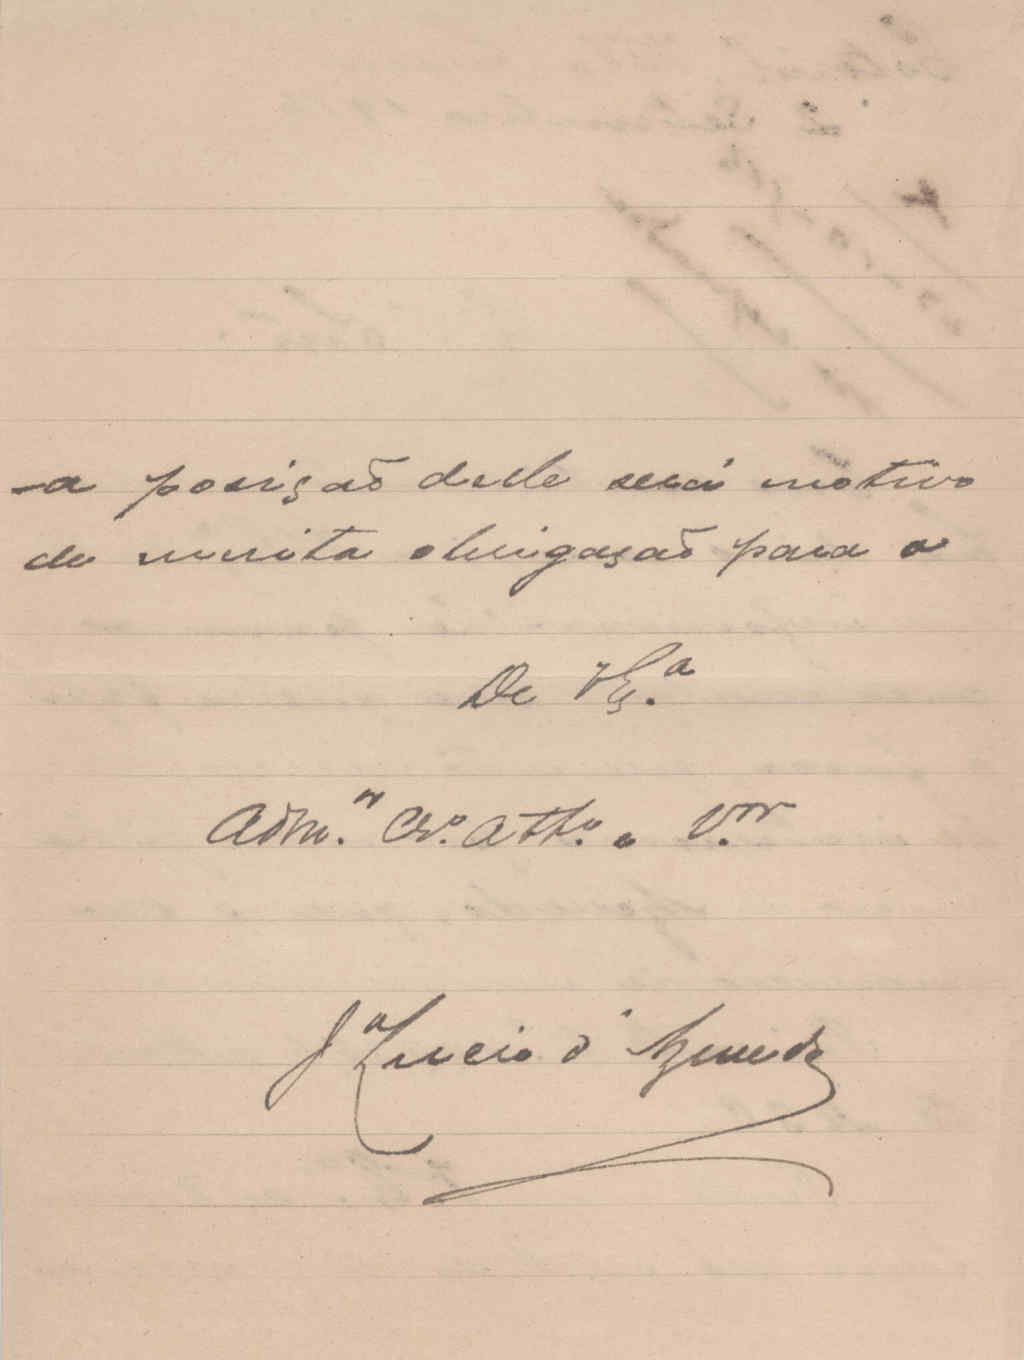 -a posição delle será motivo
de muita obrigação para o
De V.ª
Adm.ºʳ Cr.º Att.º e V.ºʳ
J.ª Lucio d'Azevedo